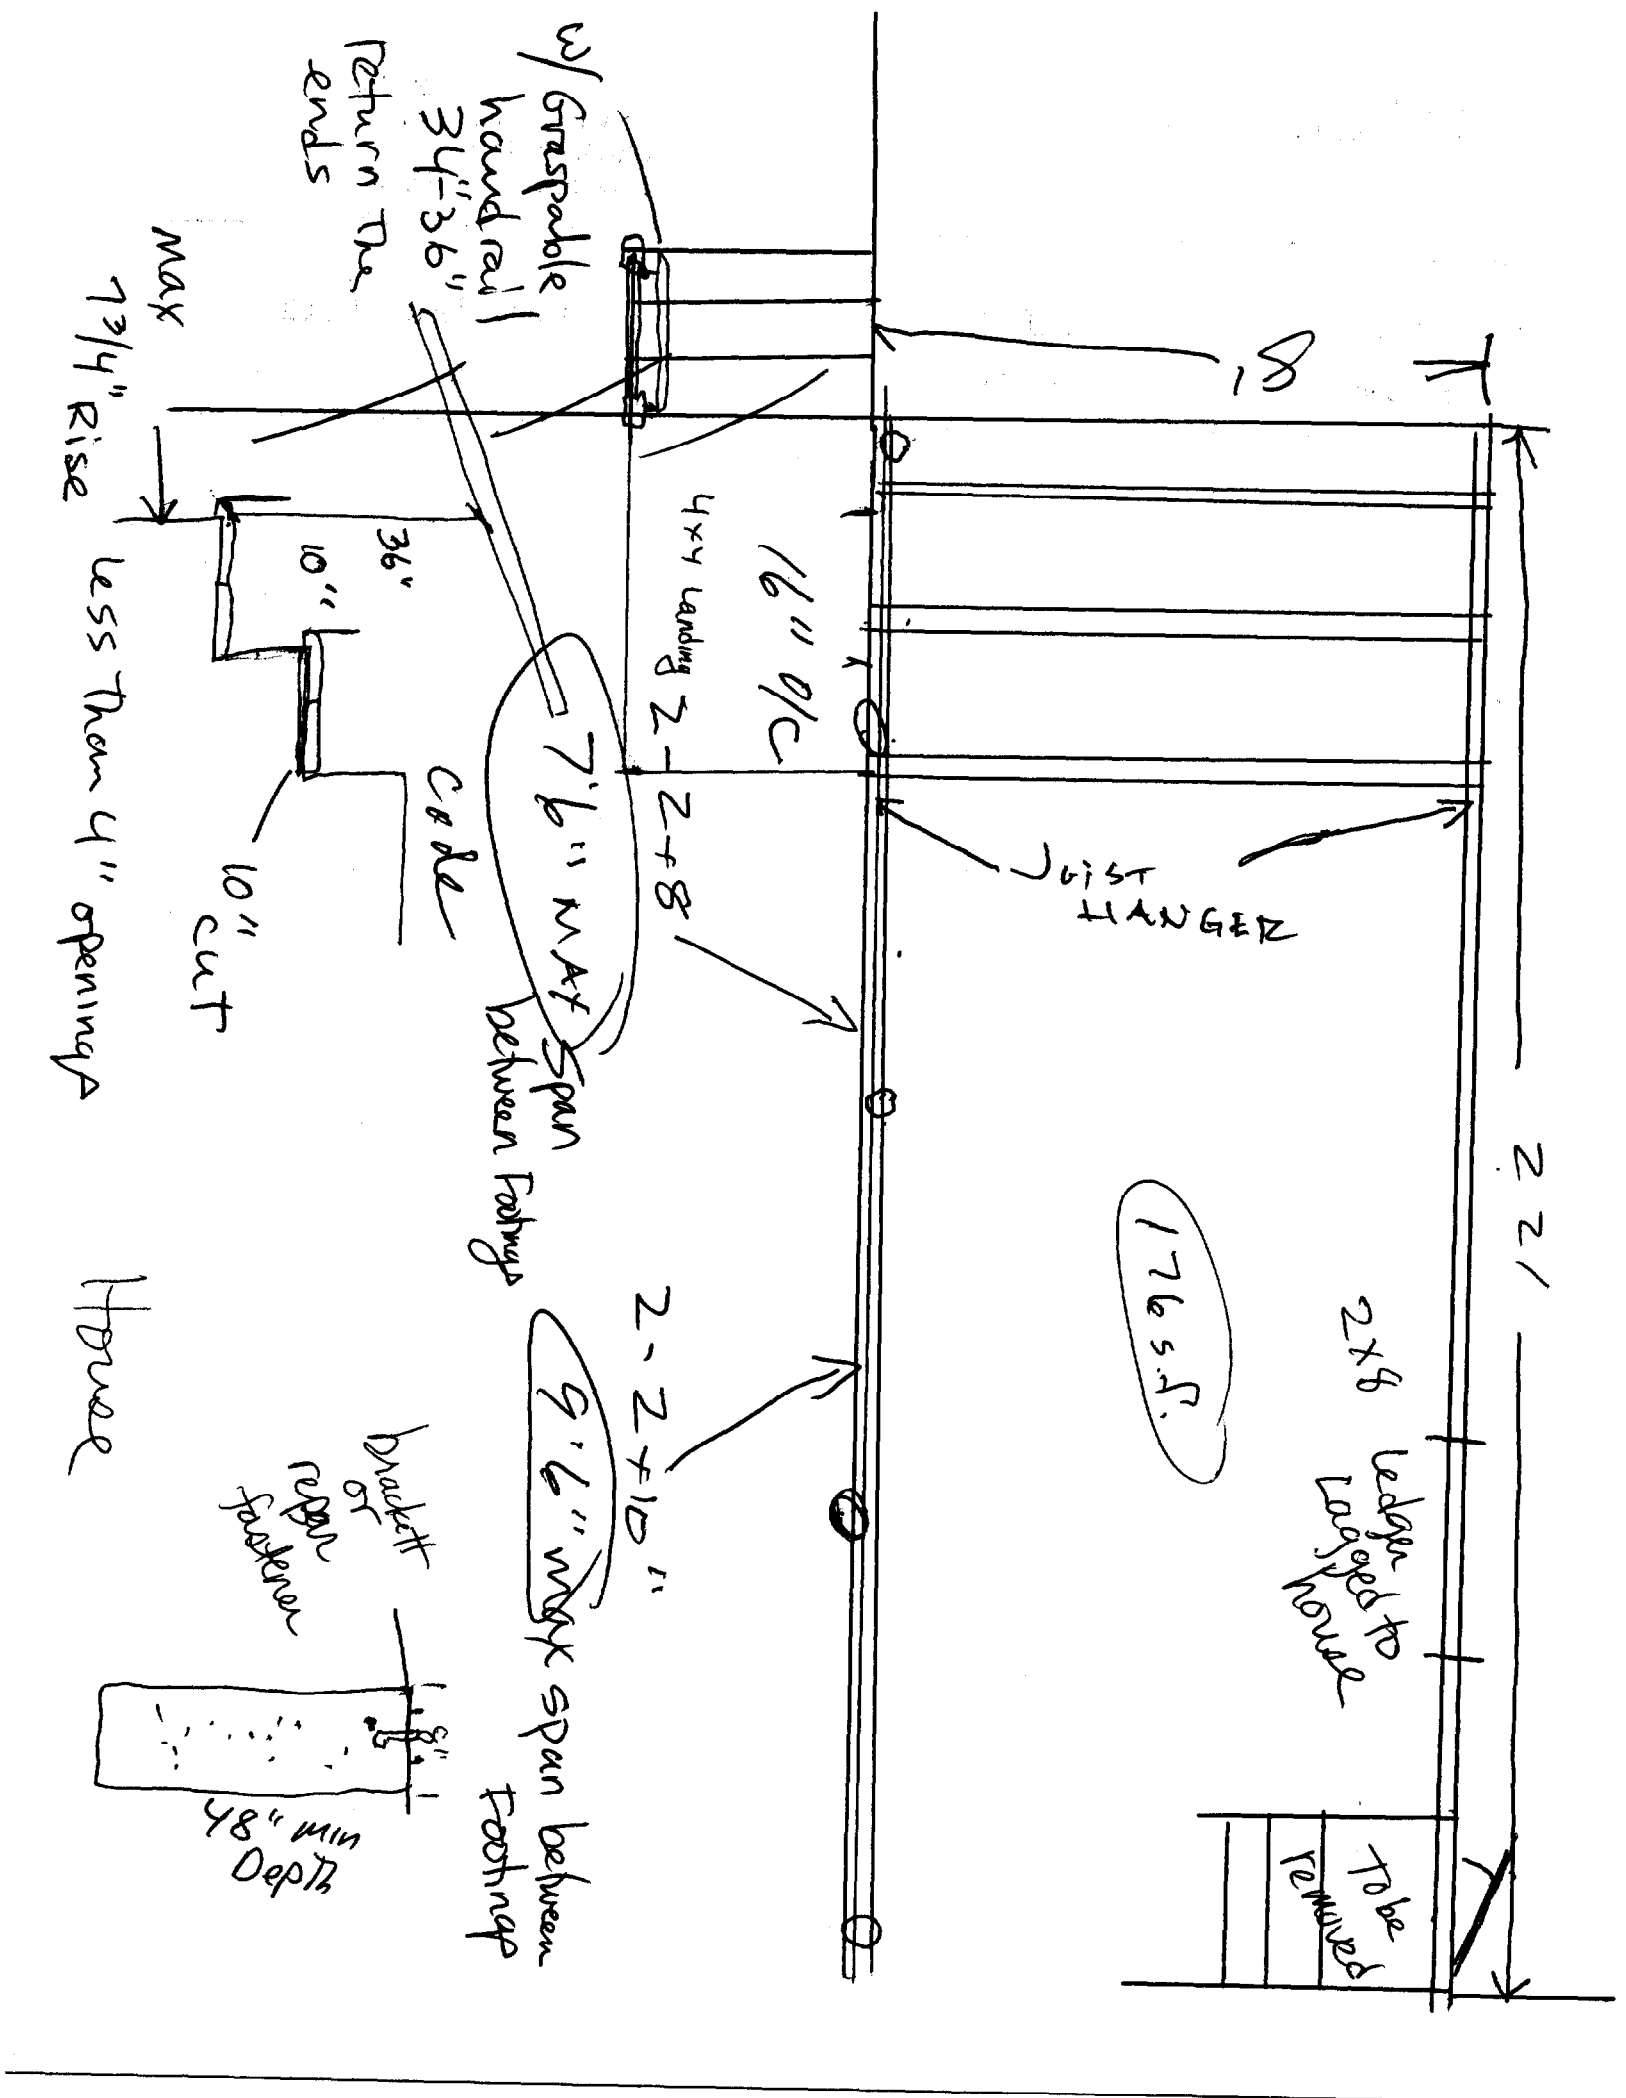 22'
8'
2x8
Ledger
Lagged to
house
To be
removed
Joist
HANGER
176 s.f.
16" O/C
4x4 Landing
2-2x8
7'6" MAX
Span
between Footings
2-2x10"
9'6" max span between
Footings
W/ Graspable
handrail
34"-36"
return The
ends
Code
36"
10"
10"
cut
Max
7 3/4" Rise
Less Than 4" openings
House
brackett
or
rebar
fastener
8"
48" min
Depth